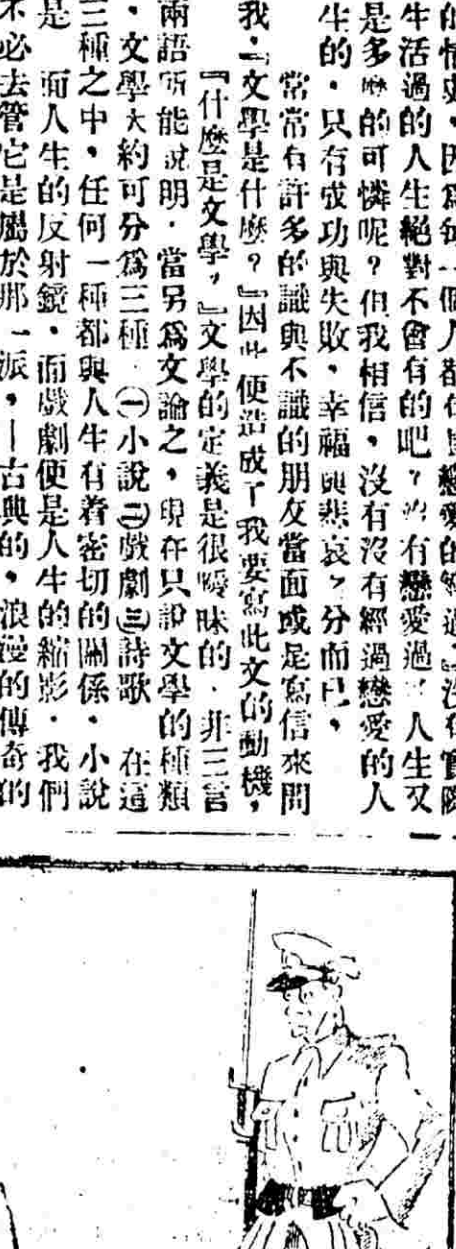 的情感，因爲每一個人都在
生活過的人生絕對不會有的吧？沒有戀愛過人生又
是多麽的可憐呢？但我相信，沒有沒有經過戀愛的人
生的．只有成功與失敗，幸福與悲哀之分而已，
常常有許多的識與不識的朋友當面或是寫信來問
我，『文學是什麽？』因此便造成了我要寫此文的動機，
『什麽是文學，』文學的定義是很曖昧的．非三言
兩語所能說明．當另爲文論之，現在只說文學的種類
，文學大約可分爲三種．㊀小說㊁戲劇㊂詩歌　在這
三種之中，任何一種都與人生有着密切的關係．小說
是　面人生的反射鏡．而戲劇便是人生的縮影．我們
不必去管它是屬於那一派，—古典的，浪漫的傳奇的